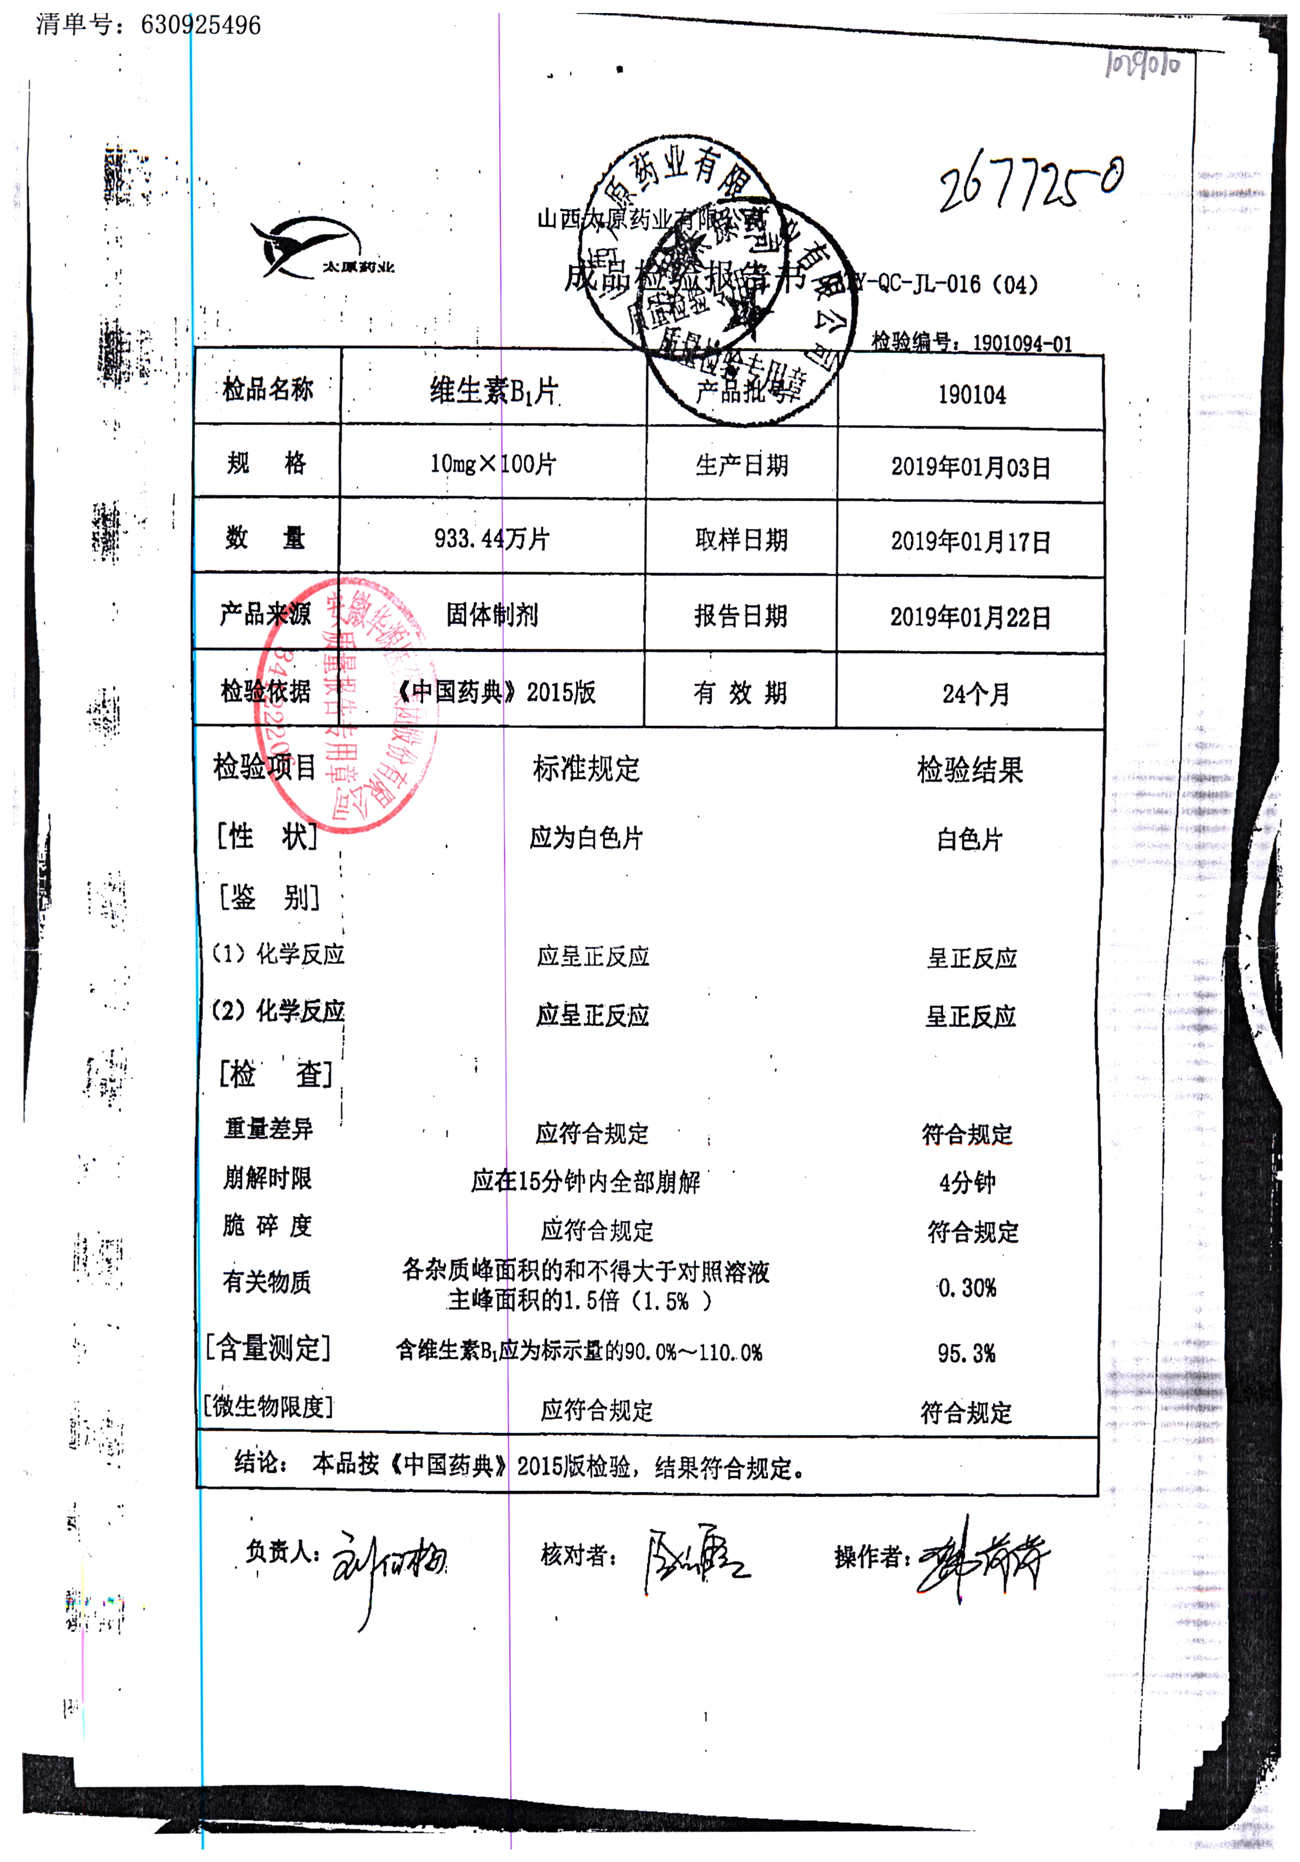 清单号：630925496
1029010
2677250
太原药业
山西太原药业有限公司
成品检验报告书
Y-QC-JL-016（04）
检验编号：1901094-01
检品名称 维生素B₁片 产品批号 190104
规 格 10mg×100片 生产日期 2019年01月03日
数 量 933.44万片 取样日期 2019年01月17日
产品来源 固体制剂 报告日期 2019年01月22日
检验依据 《中国药典》2015版 有 效 期 24个月
检验项目 标准规定 检验结果
[性 状] 应为白色片 白色片
[鉴 别]
（1）化学反应 应呈正反应 呈正反应
（2）化学反应 应呈正反应 呈正反应
[检 查]
重量差异 应符合规定 符合规定
崩解时限 应在15分钟内全部崩解 4分钟
脆 碎 度 应符合规定 符合规定
有关物质 各杂质峰面积的和不得大于对照溶液 0.30%
主峰面积的1.5倍（1.5% ）
[含量测定] 含维生素B₁应为标示量的90.0%～110.0% 95.3%
[微生物限度] 应符合规定 符合规定
结论： 本品按《中国药典》2015版检验，结果符合规定。
负责人： 核对者： 操作者：
质量检验专用章
质量报告专用章